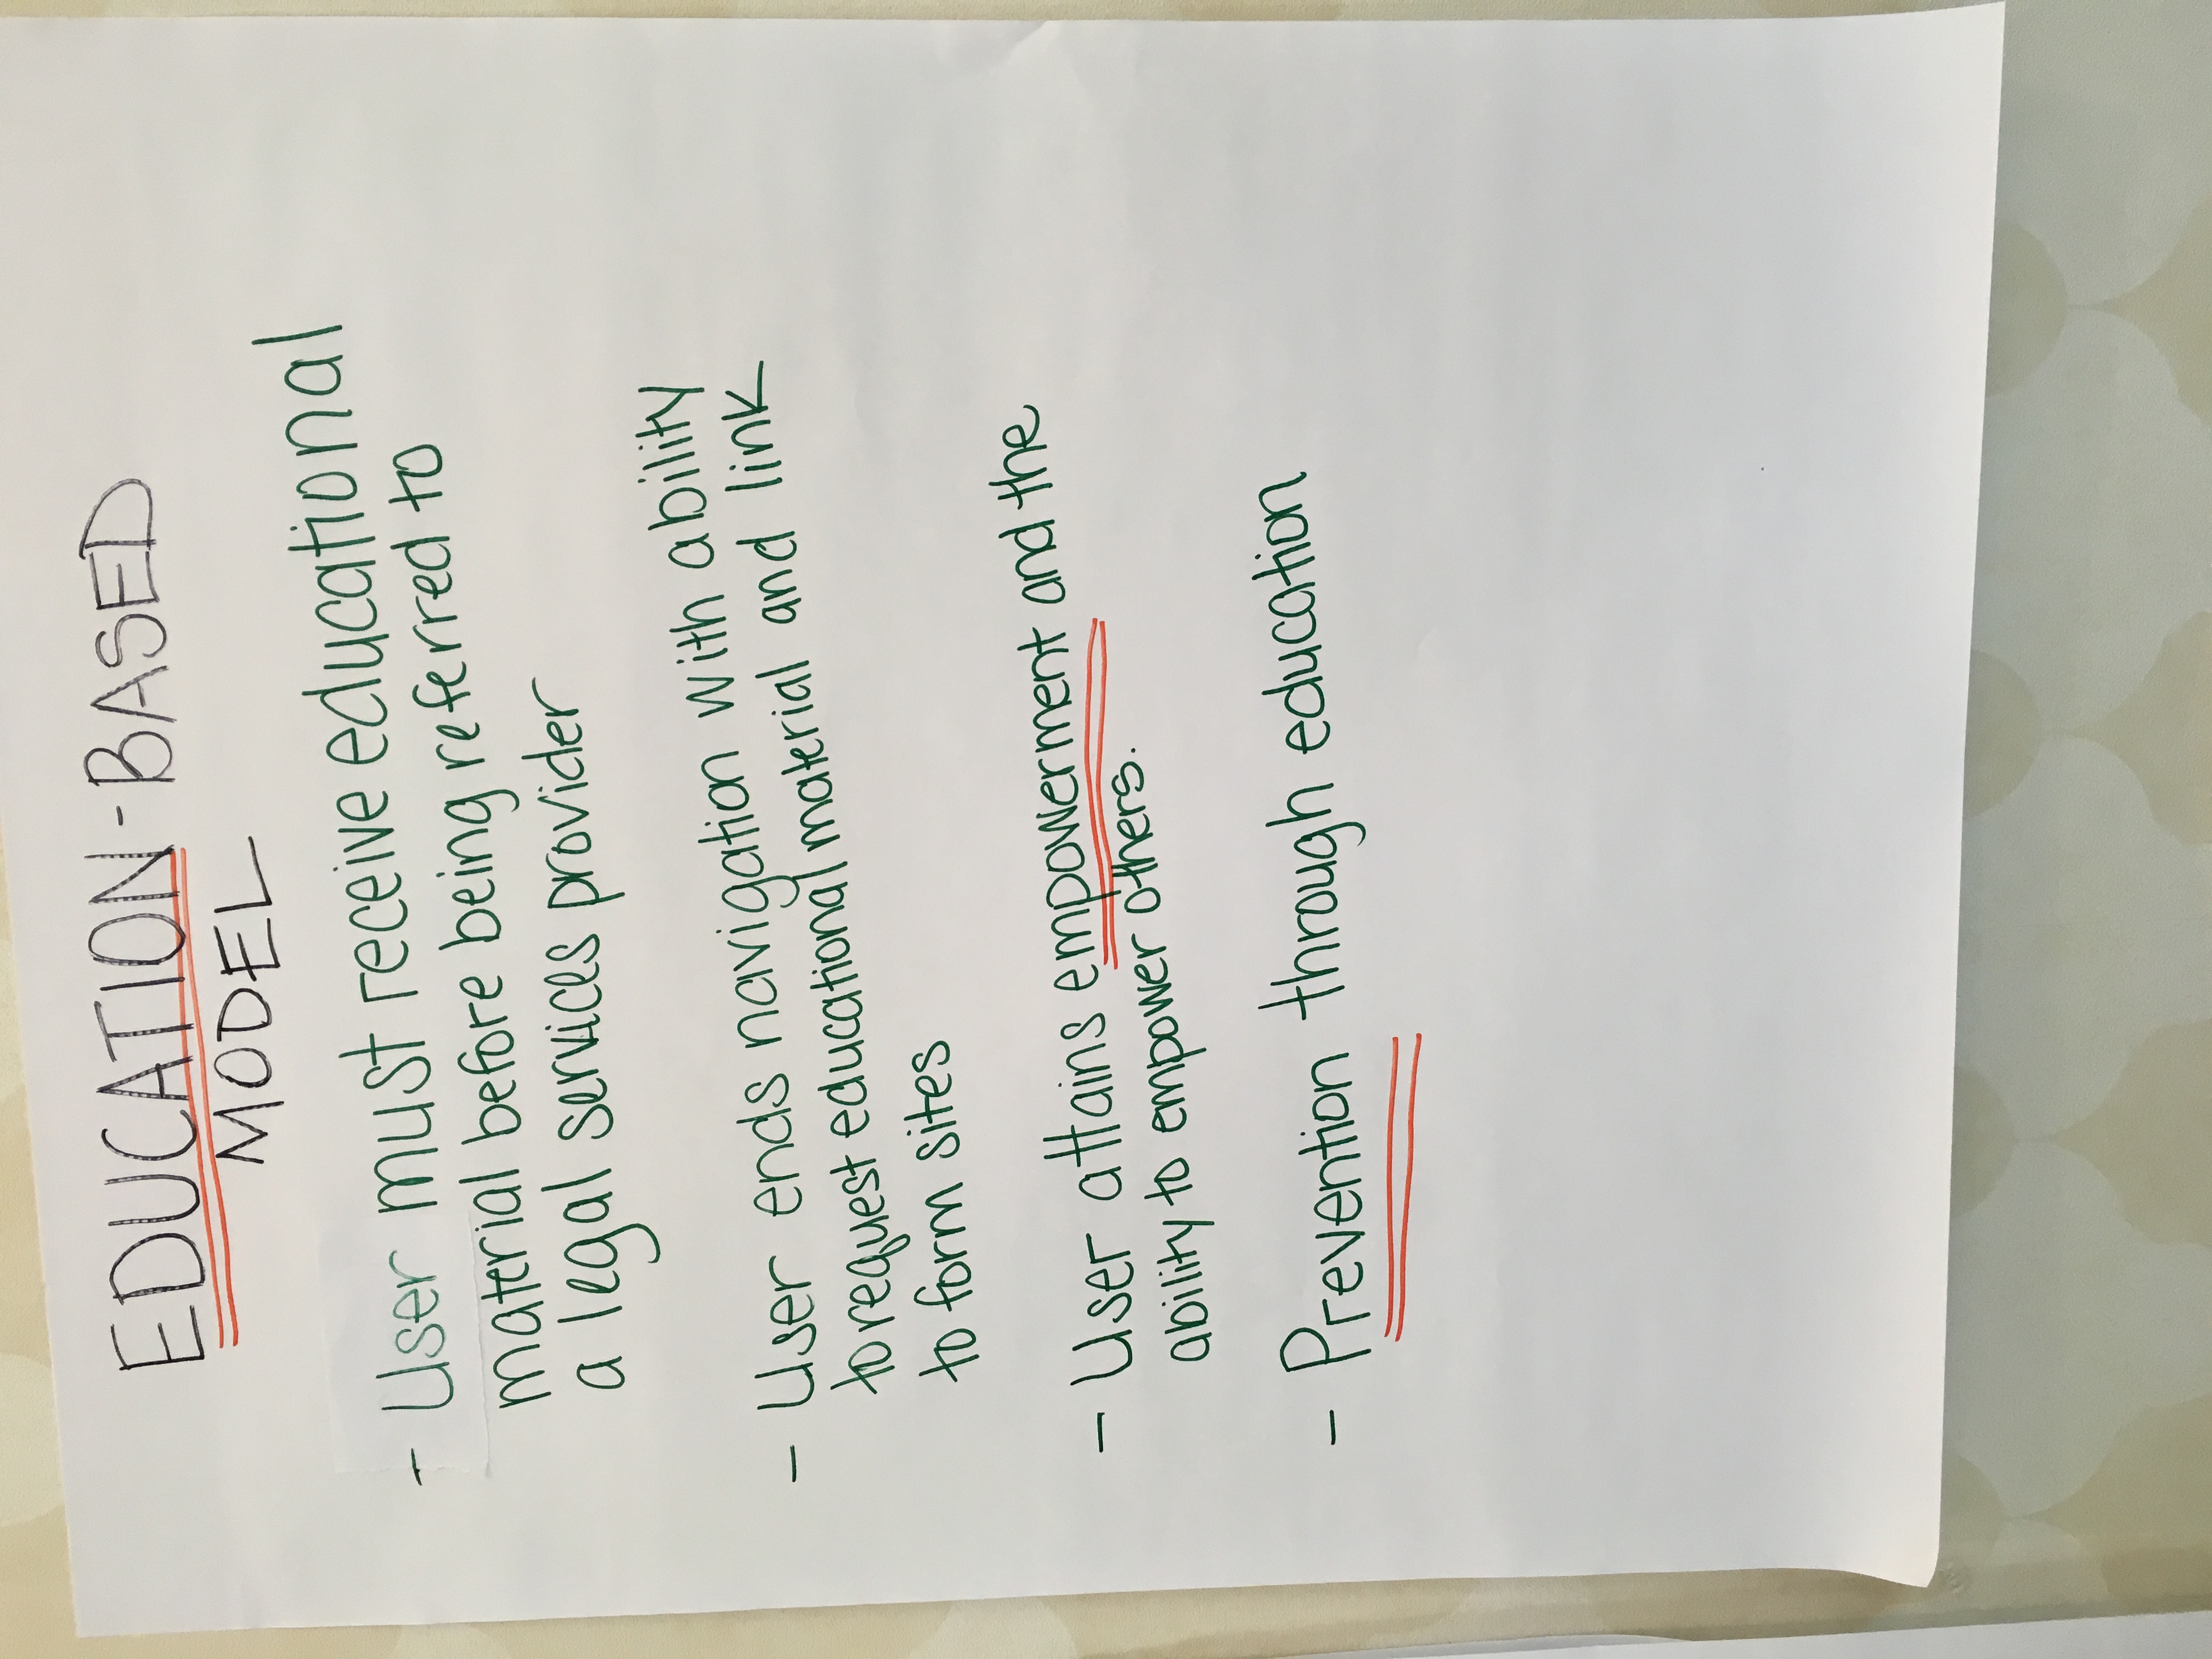 EDUCATION-BASED
MODEL
- User must receive educational
material before being referred to
a legal services provider
- User ends navigation with ability
to request educational material and link
to form sites
- User attains empowerment and the
ability to empower others.
- Prevention through education